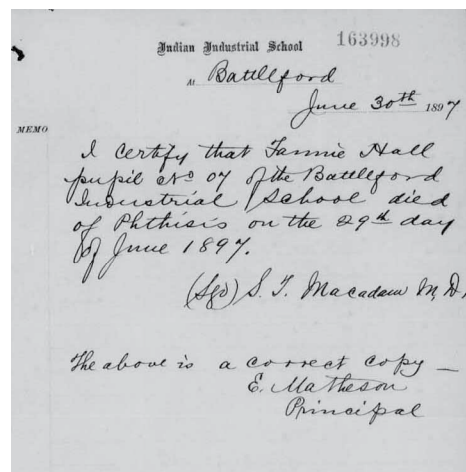 Indian Industrial School 163998
At Battleford
June 30th 1897
MEMO
I certify that Fannie Hall
pupil No 07 of the Battleford
Industrial School died
of Phthisis on the 29th day
of June 1897.
(Sgd) S. T. Macadam M, D,
The above is a correct copy —
E. Matheson
Principal